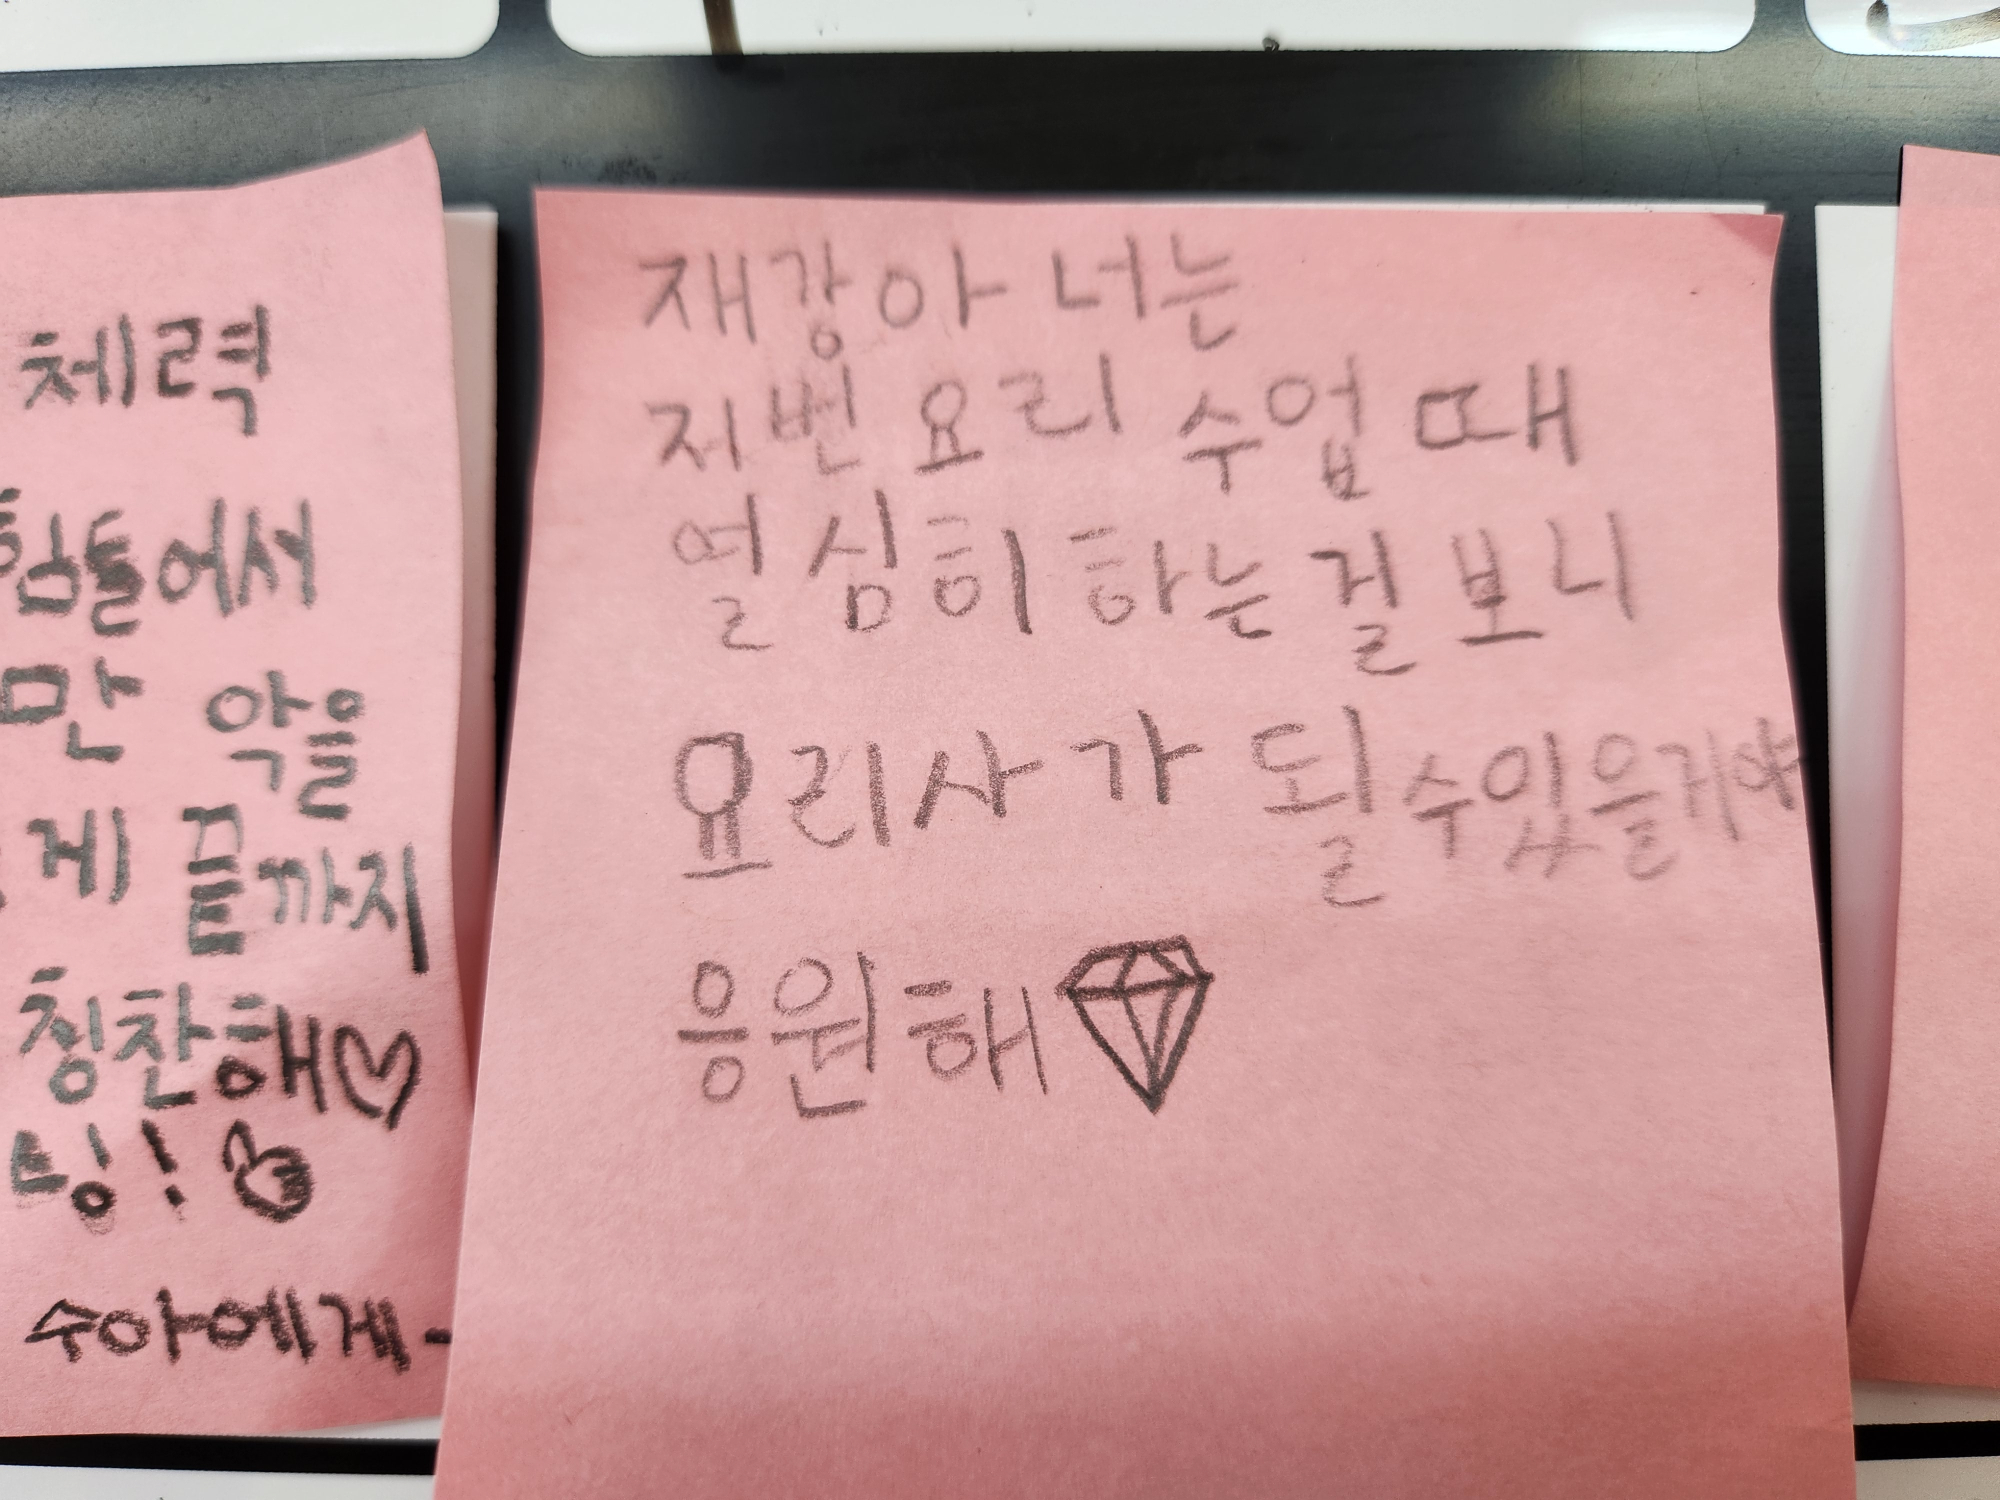 체력
힘들어서
만 악을
게 끝까지
칭찬해♡
팅!
수아에게-
재강아 너는
저번 요리 수업 때
열심히 하는 걸 보니
요리사가 될 수 있을거야
응원해